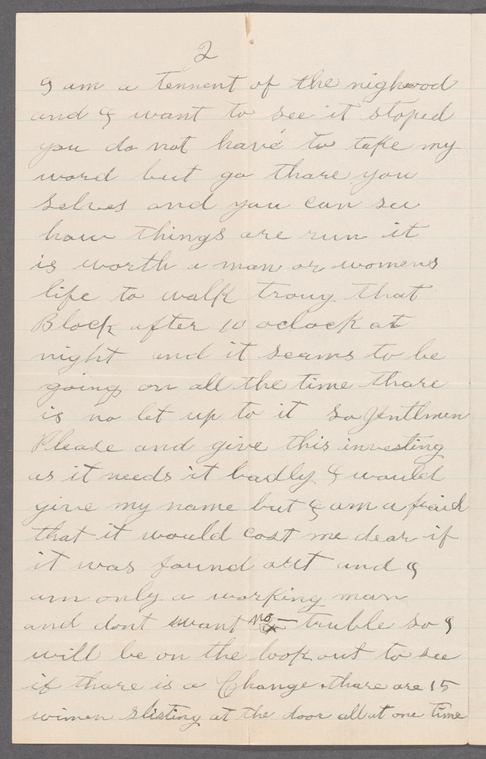 2
I am a tennent of the nighwod
and I want to see it stoped
you do not have to take my
word but go thare you
selves and you can see
how things are run it
is worth a man or womens
life to walk troug that
Block after 10 oclock at
night and it seams to be
going on all the time thare
is no let up to it so Jentlmen
Please and give this investing
as it needs it badly I would
give my name but I am afraid
that it would cost me dear if
it was found out and I
am only a working man
and dont want no truble so I
will be on the look out to see
if thare is a Change. thare are 15
wimen at the door all at one time